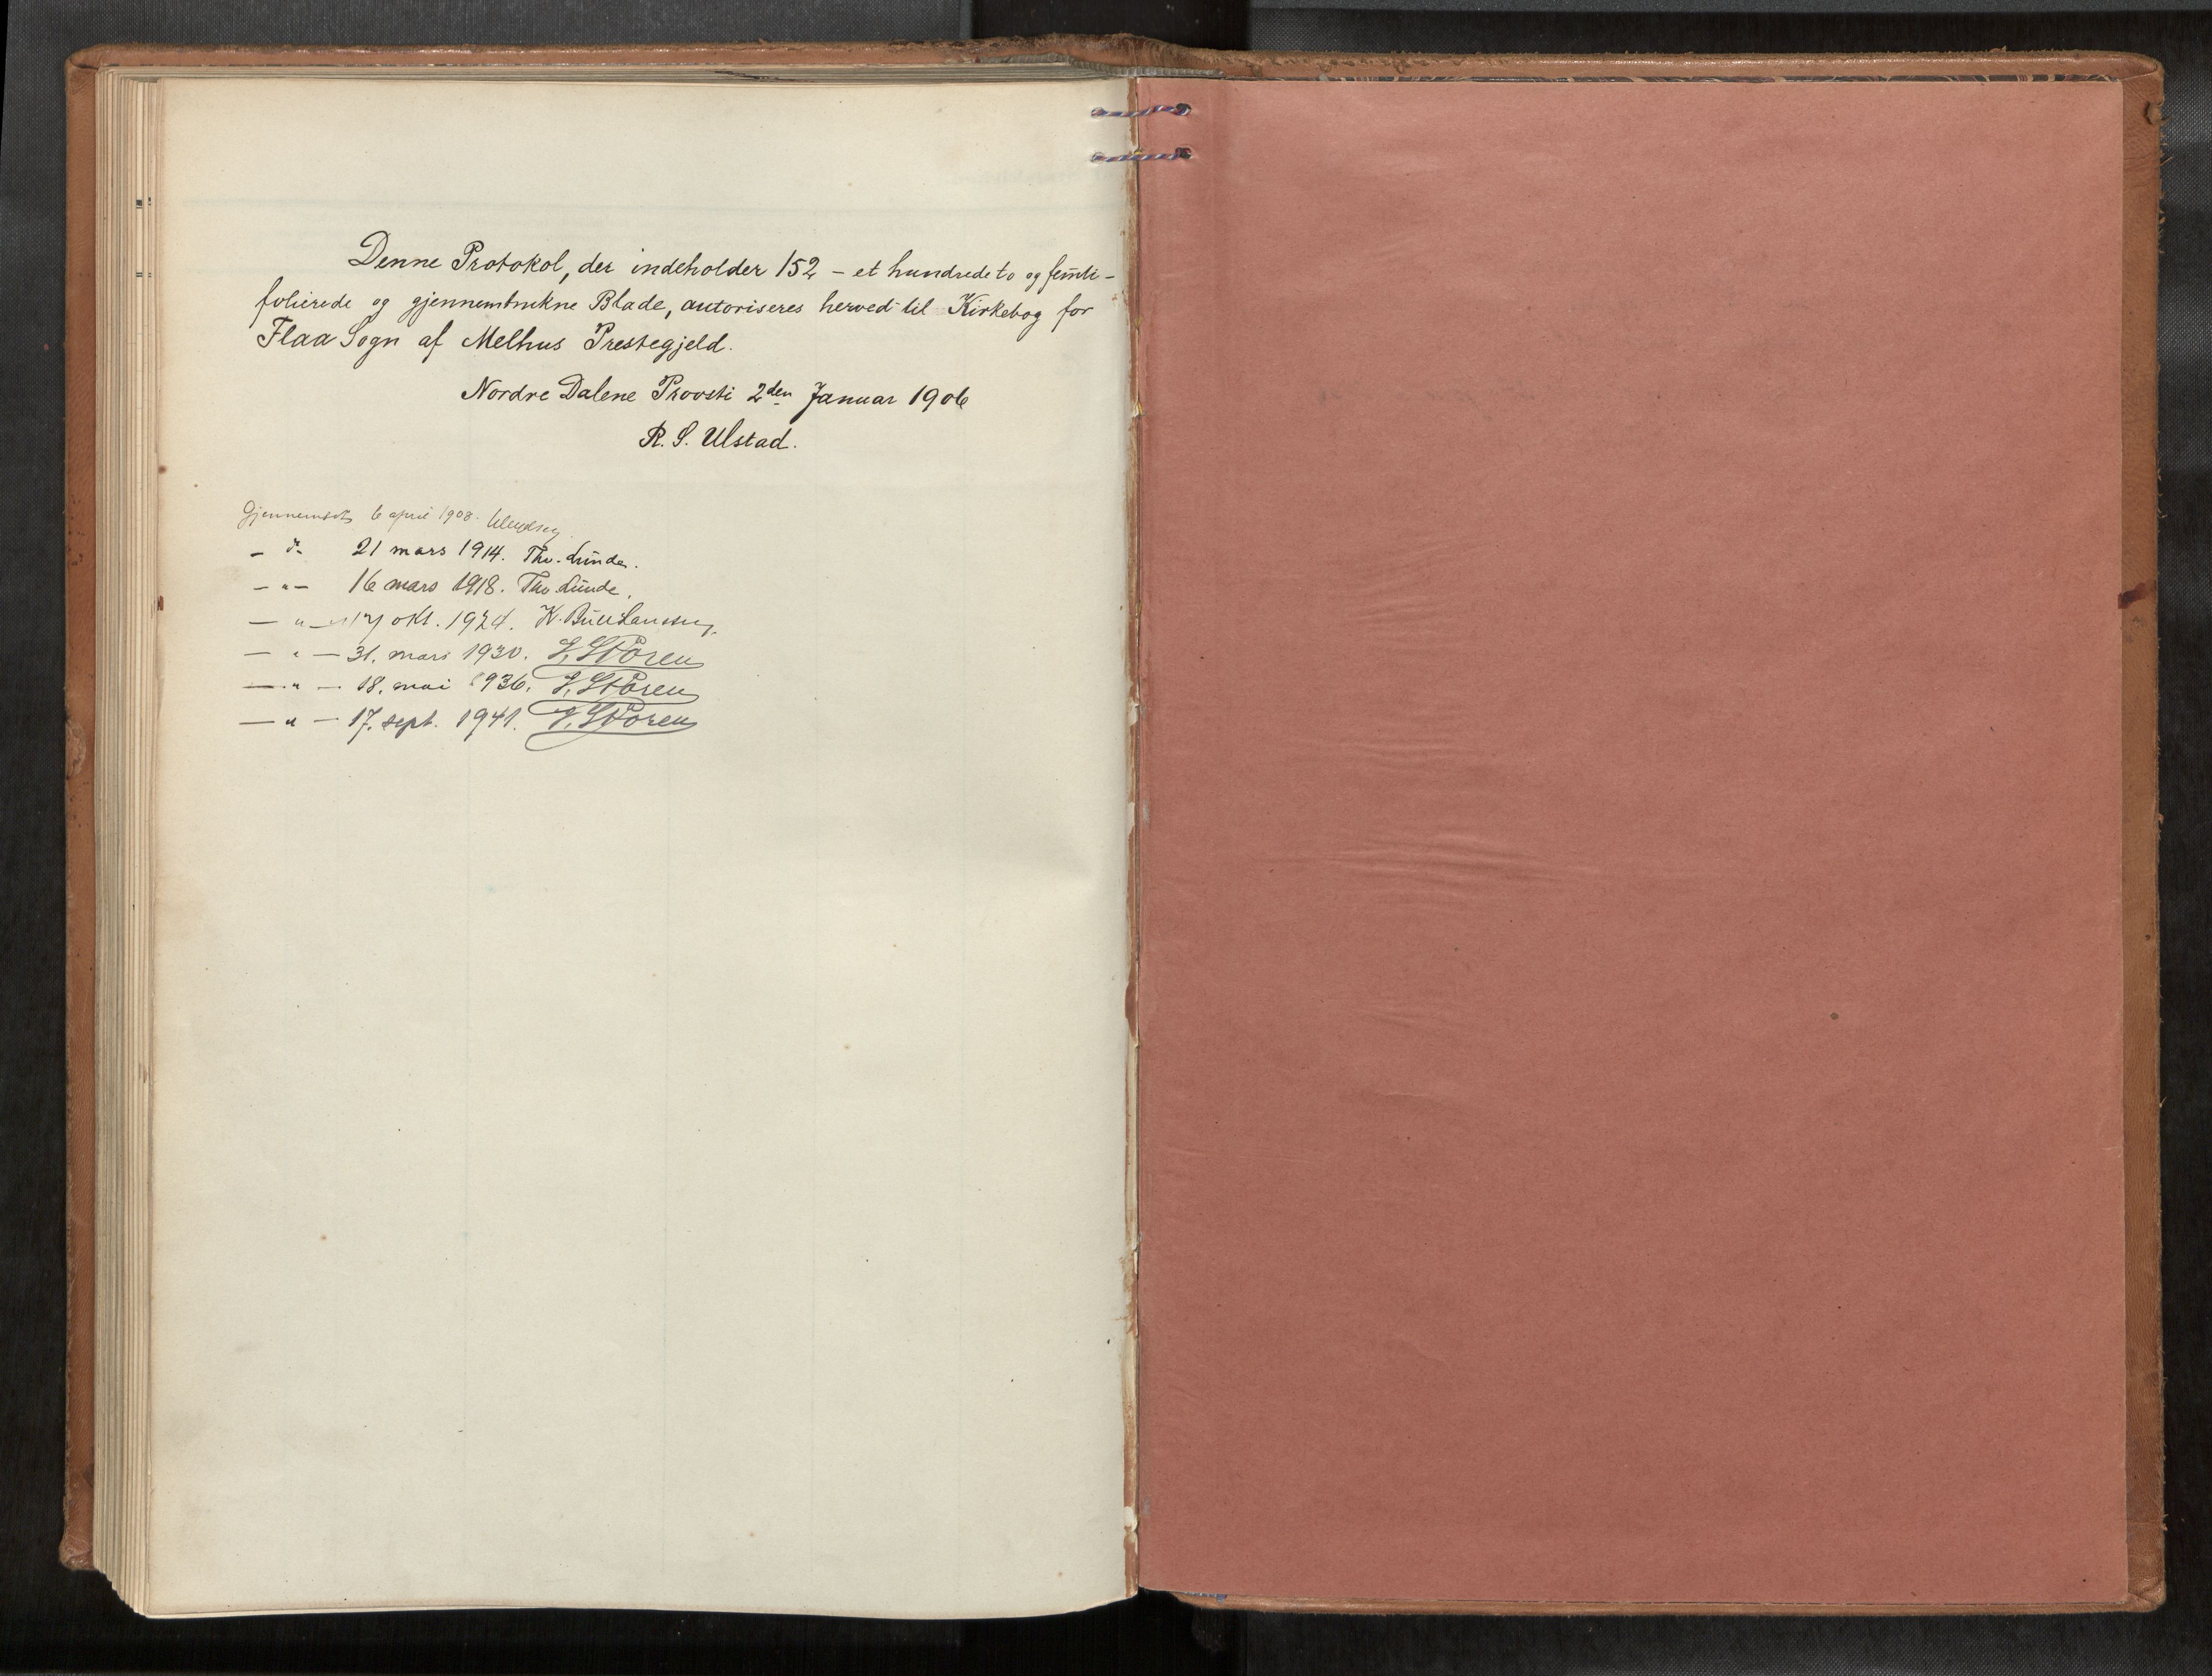 Denne Protokol, der indeholder 152 – et hundrede to og femti –
folierede og gjennemtrukne Blade, autoriseres herved til Kirkebog for
Flaa Sogn af Melhus Prestegjeld.
Nordre Dalene Provsti 2den Januar 1906
R. S. Ulstad.
Gjennemset 6 april 1908.
– do 21 mars 1914. Thv. Lunde.
– " – 16 mars 1918. Thv. Lunde.
– " – 17 okt. 1924. K. Bull
– " – 31. mars 1930. J. Støren
– " – 18. mai 1936. J. Støren
– " – 17. sept. 1941. J. Støren